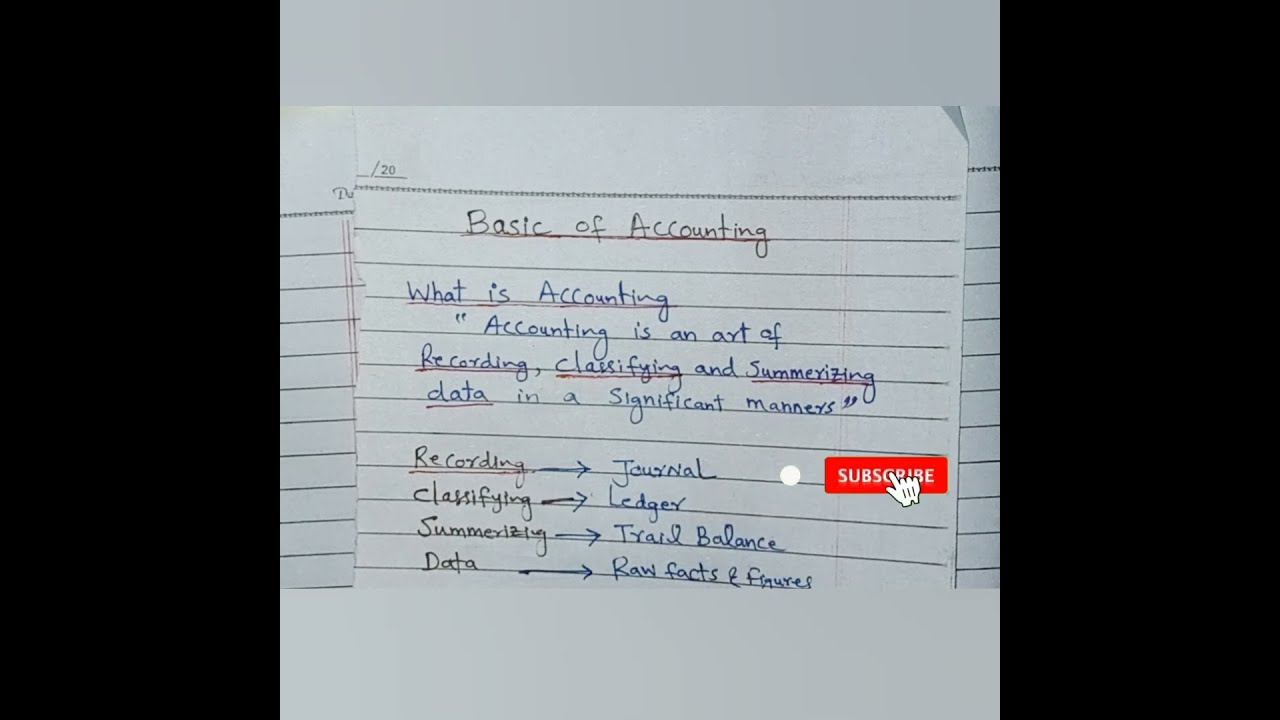 /20
Basic of Accounting
What is Accounting
" Accounting is an art of
Recording, Classifying and Summerizing
data in a Significant manners "
Recording → Journal
SUBSCRIBE
Classifying → Ledger
Summerizing → Trail Balance
Data → Raw facts & figures